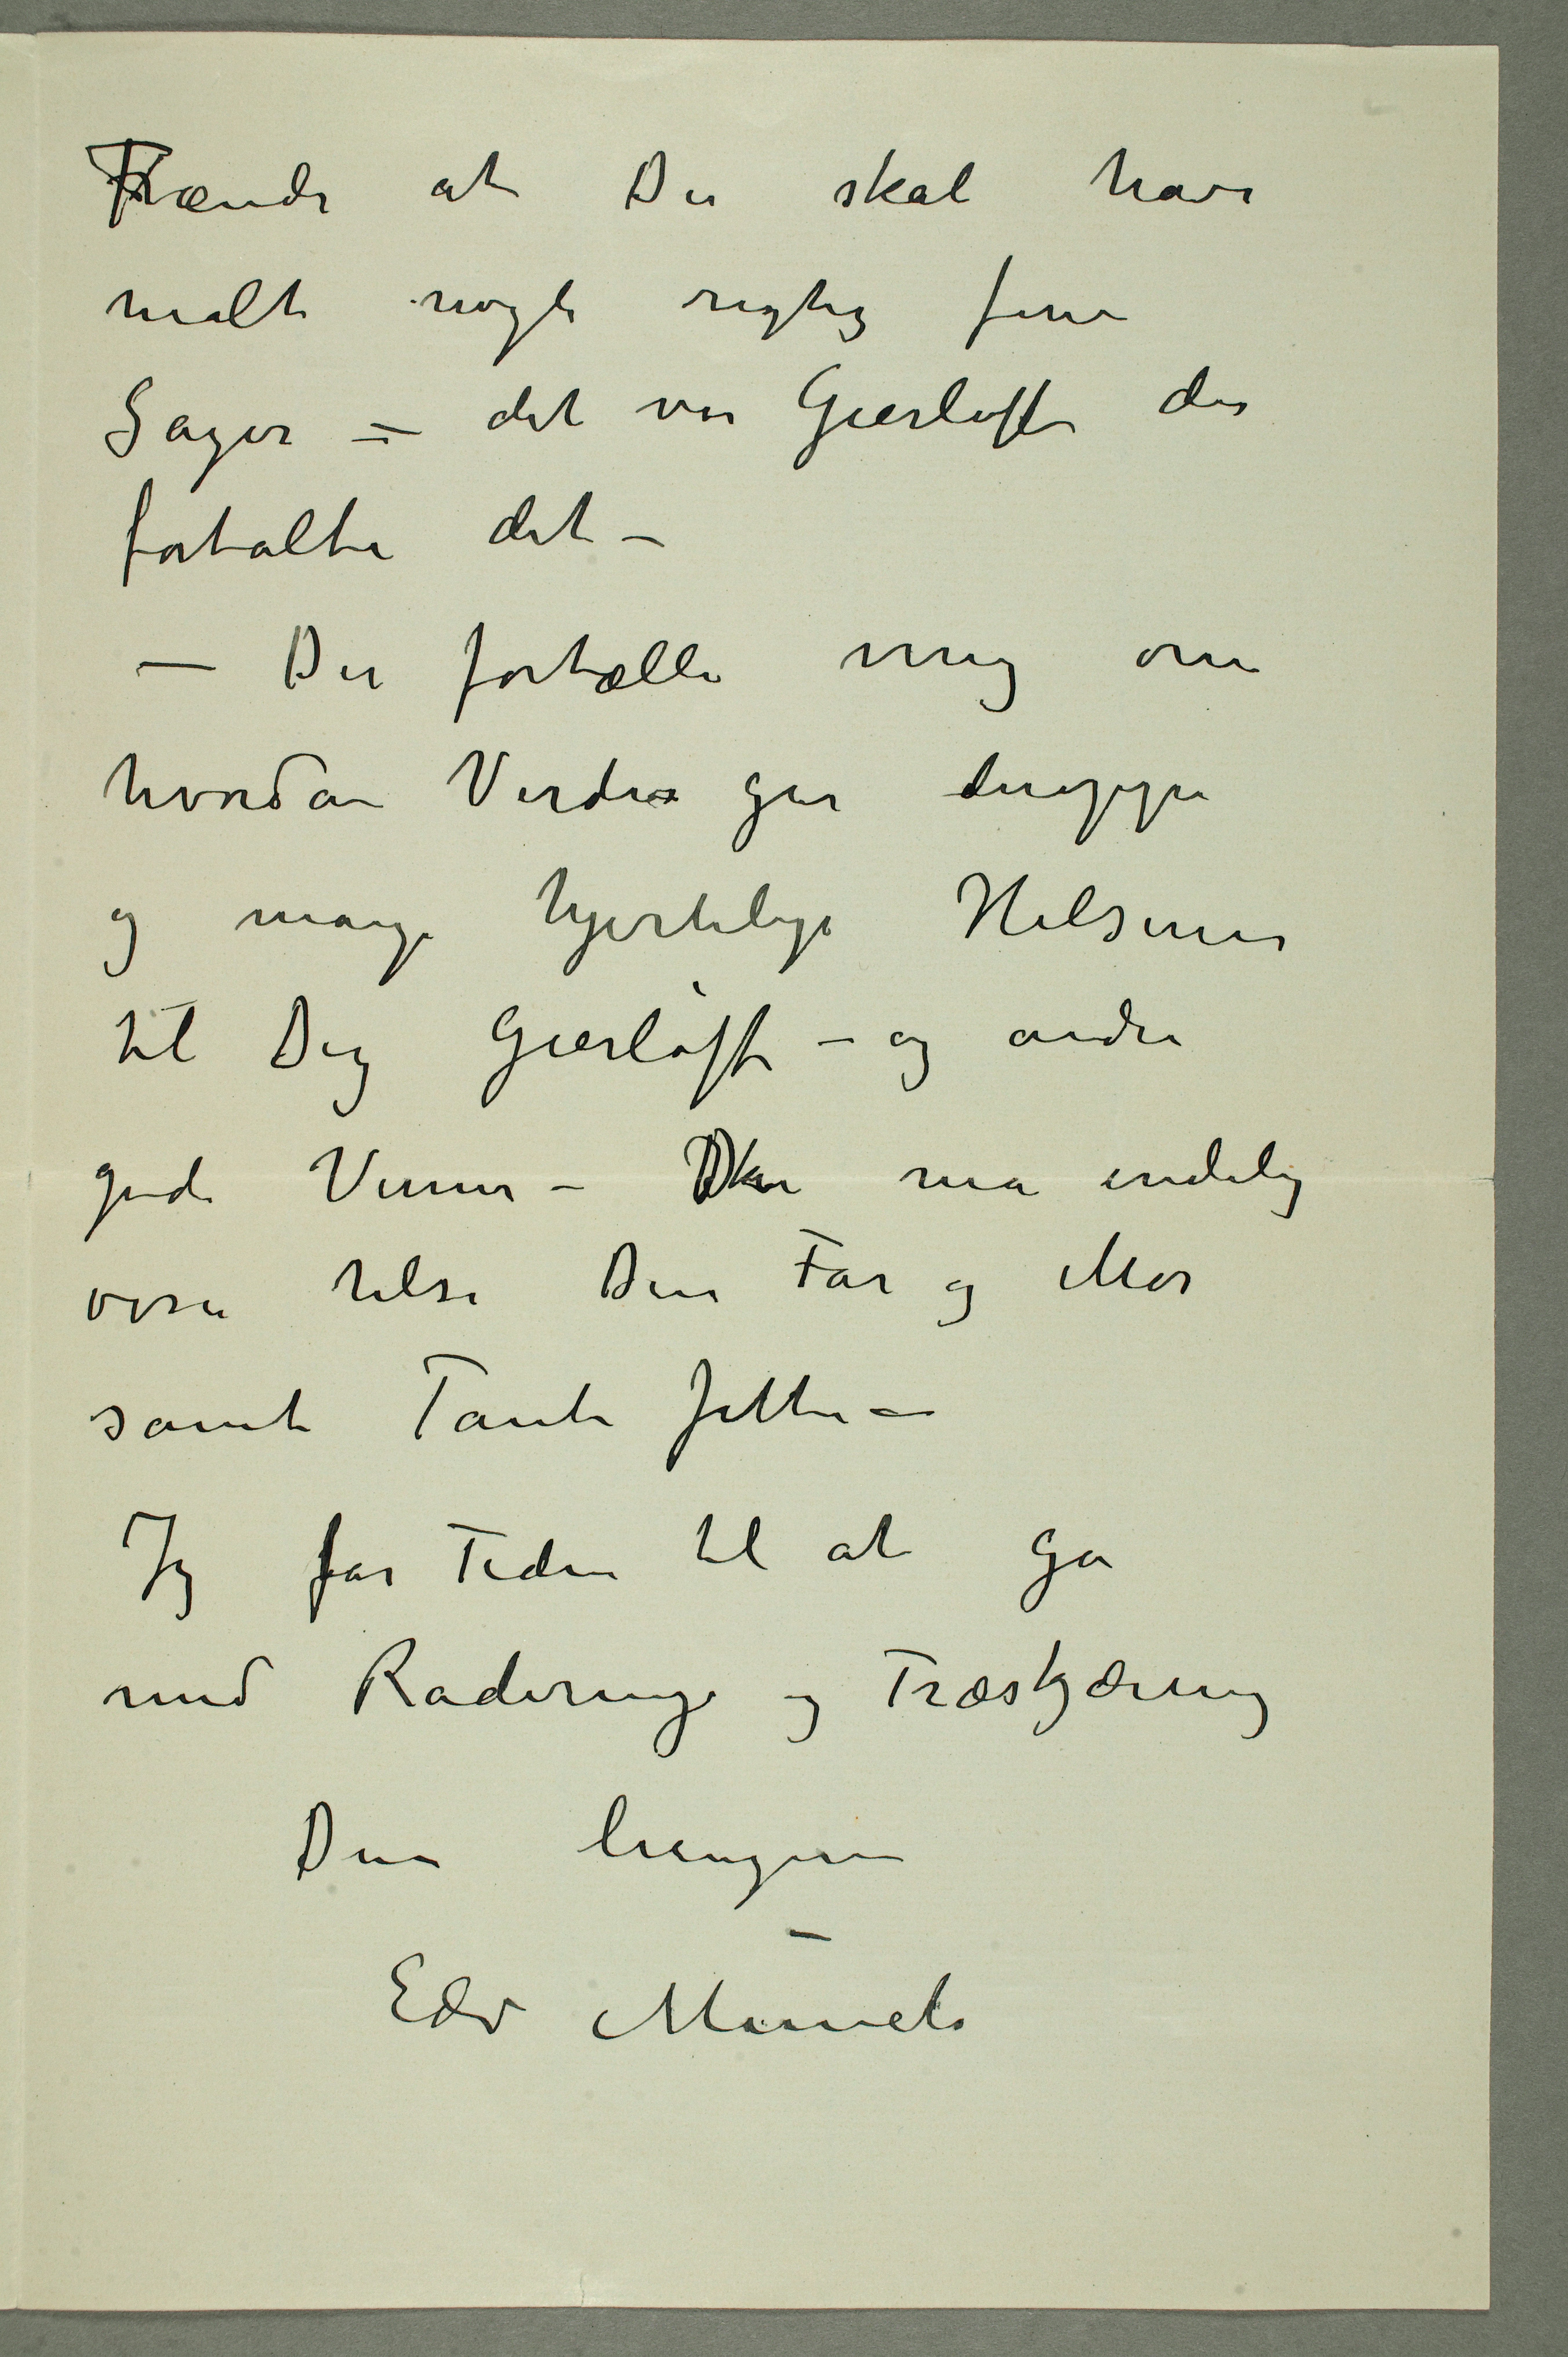 Frænde at Du skal have
malt nogle rigtig fine
Sager – det var Gierløff der
fortalte det –
– Du fortæller mig om
hvordan Verden går deroppe
og mange hjertelige Hilsener
til Dig Gierløff – og andre
gode Venner – Du må endelig
også hilse Din Far og Mor
samt Tante Jette –
Jeg får Tiden til at gå
med Raderinge og Træskjæring
Din hengivne
Edv Munch